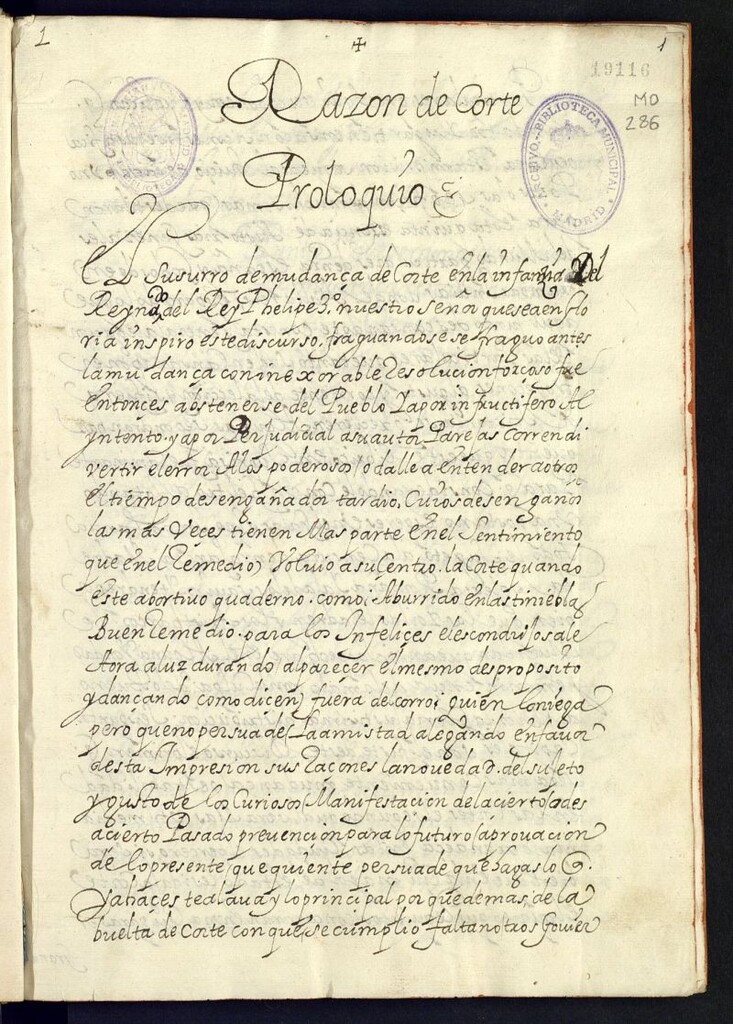 1 + 1
19116
MD
286
ARCHIVO-BIBLIOTECA MUNICIPAL
MADRID
Razon de Corte
Proloquio
El susurro de mudança de Corte en la infançia Del
Reyno del Rey Phelipe 3º nuestro señor que sea en glo
ria inspiro este discurso, fraguandose se fraguo antes
la mudança con inexorable Resolucion forçoso fue
entonces abstenerse del Pueblo Ya por infructifero Al
yntento. ya por Perjudicial a su autor Parejas corren di
vertir el error A los poderosos / o dalle a entender a otros
el tiempo desengañador tardio, Cuios desengaños
las mas Veces tienen Mas parte en el Sentimiento
que en el Remedio) Volvio a su Centro. la Corte quando
este abortivo quaderno. como Aburrido en las tinieblas
Buen Remedio. para los Infelices el escondrijo sale
Aora a luz durando al pareçer el mesmo desproposito
y dançando como diçen) fuera de corro; quien lo niega
pero que no persuade La amistad alegando en favor
desta Impresion sus Raçones la novedad. del sujeto
y gusto de los Curiosos (Manifestacion del acierto / o des
acierto Pasado prevencion para lo futuro (aprovacion
de lo presente (que quien te persuade que hagas lo q.
ya haces te alava y lo principal por que demas de la
buelta de Corte con que se cumplio faltan otros